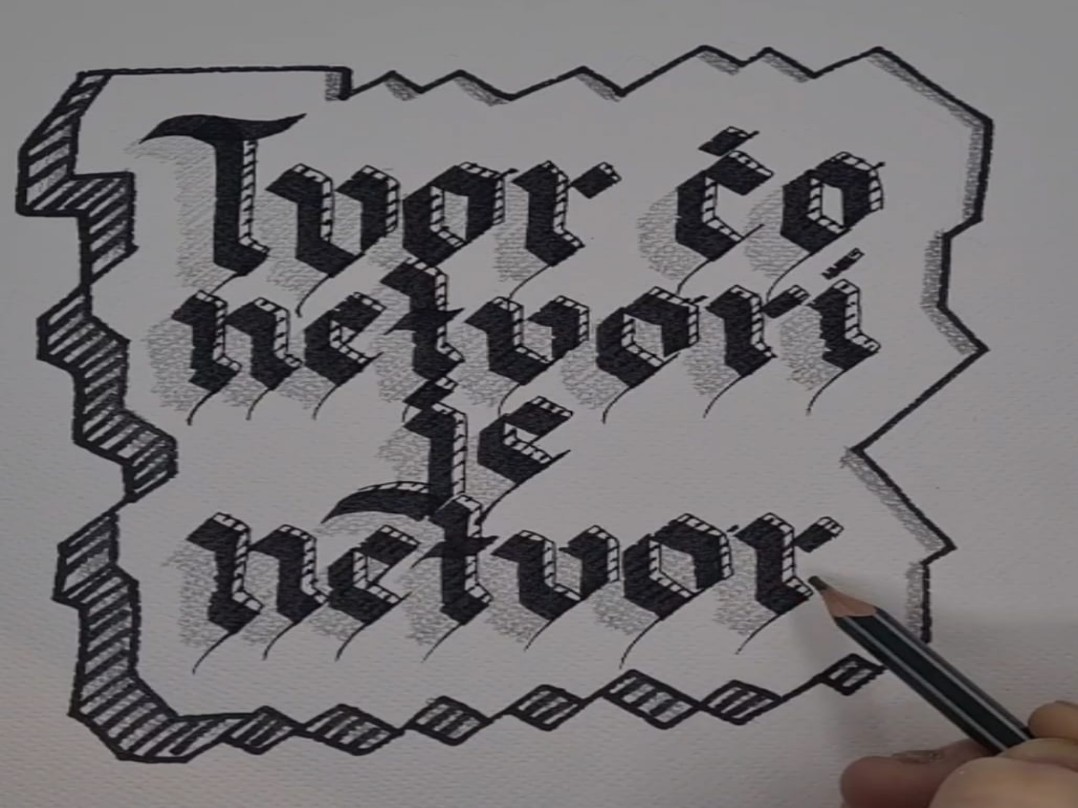 Tvor čo
netvorí
je
netvor